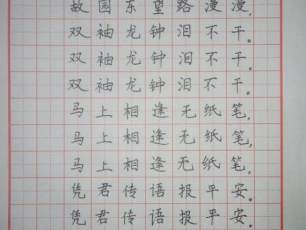 故园东望路漫漫,
双袖龙钟泪不干。
双袖龙钟泪不干。
双袖龙钟泪不干。
马上相逢无纸笔,
马上相逢无纸笔,
马上相逢无纸笔,
凭君传语报平安。
凭君传语报平安。